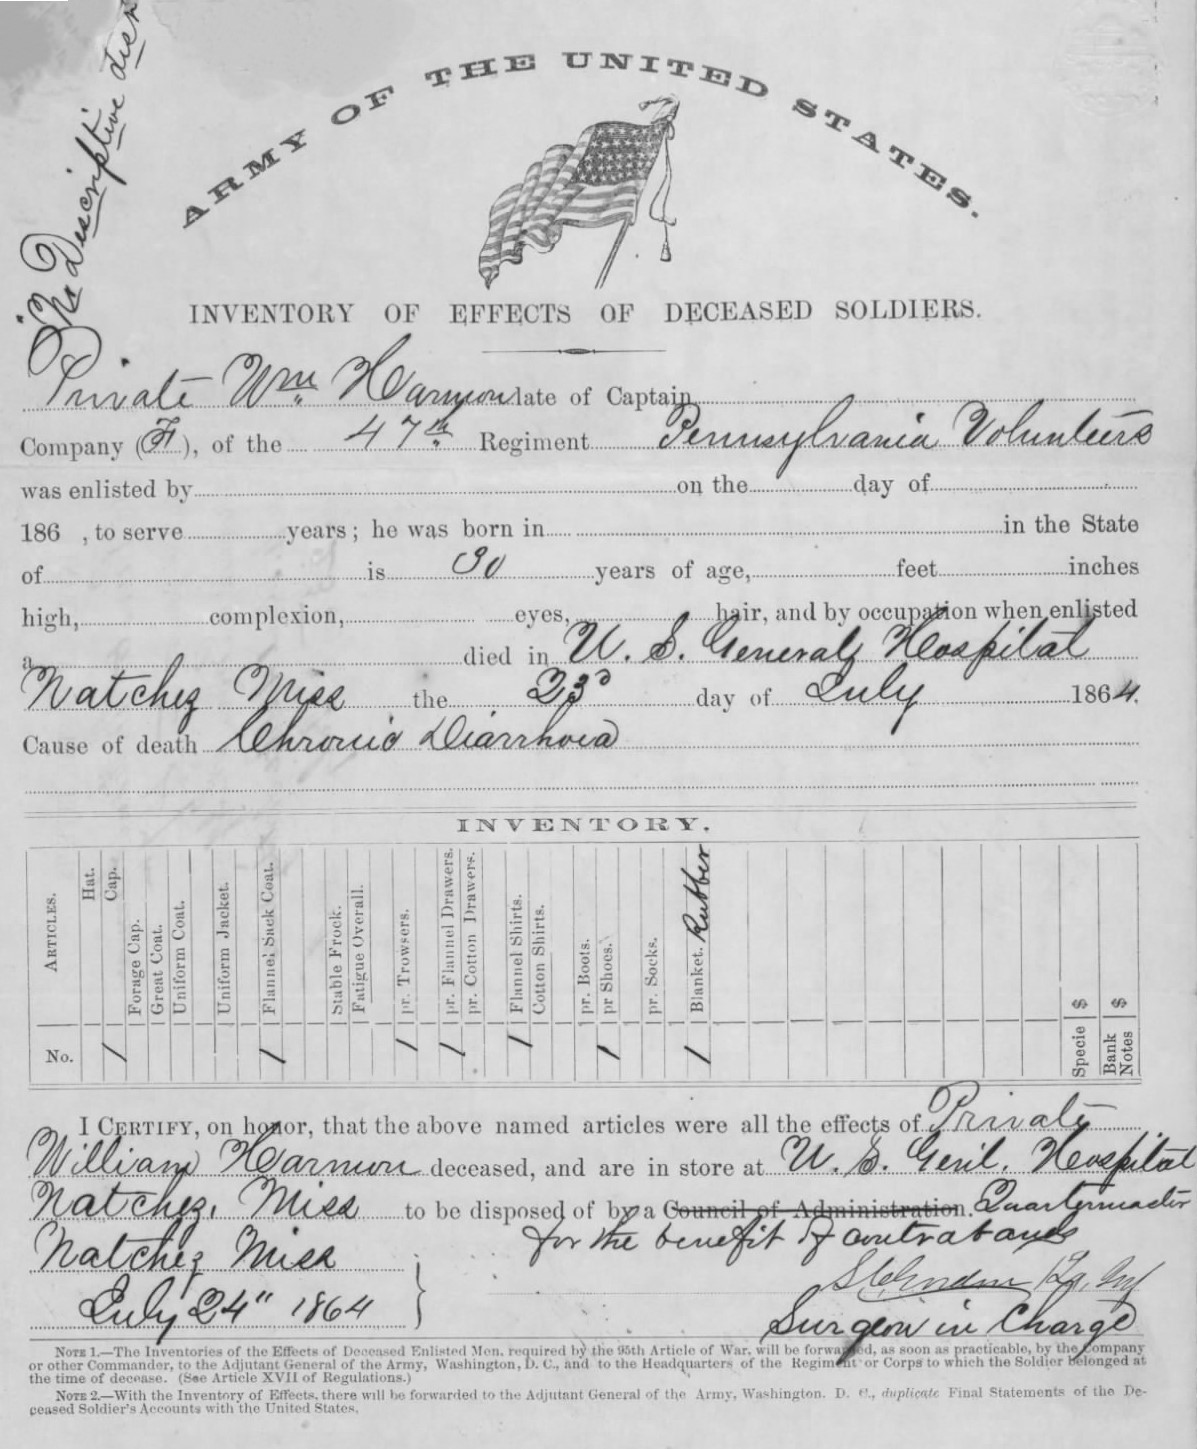 No Descriptive
ARMY OF THE UNITED STATES.
INVENTORY OF EFFECTS OF DECEASED SOLDIERS.
Private Wm Harmon late of Captain
Company (F), of the 47th Regiment Pennsylvania Volunteers
was enlisted by on the day of
186 , to serve years; he was born in in the State
of is 30 years of age, feet inches
high, complexion, eyes, hair, and by occupation when enlisted
a died in U. S. General Hospital
Natchez Miss the 23d day of July 1864.
Cause of death Chronic Diarrhoea
INVENTORY.
ARTICLES. Hat. Cap. Forage Cap. Great Coat. Uniform Coat. Uniform Jacket. Flannel Sack Coat. Stable Frock. Fatigue Overall. pr. Trowsers. pr. Flannel Drawers. pr. Cotton Drawers. Flannel Shirts. Cotton Shirts. pr. Boots. pr Shoes. pr. Socks. Blanket. Rubber $ $
No. 1 1 1 1 1 1 1 Specie Bank Notes
I CERTIFY, on honor, that the above named articles were all the effects of Private
William Harmon deceased, and are in store at U. S. Genl. Hospital
Natchez, Miss to be disposed of by a Council of Administration. Quartermaster
for the benefit of contrabands
Natchez Miss
July 24" 1864
Surgeon in Charge
NOTE 1.—The Inventories of the Effects of Deceased Enlisted Men, required by the 95th Article of War, will be forwarded, as soon as practicable, by the Company
or other Commander, to the Adjutant General of the Army, Washington, D. C., and to the Headquarters of the Regiment or Corps to which the Soldier belonged at
the time of decease. (See Article XVII of Regulations.)
NOTE 2.—With the Inventory of Effects, there will be forwarded to the Adjutant General of the Army, Washington, D. C., duplicate Final Statements of the De-
ceased Soldier's Accounts with the United States.